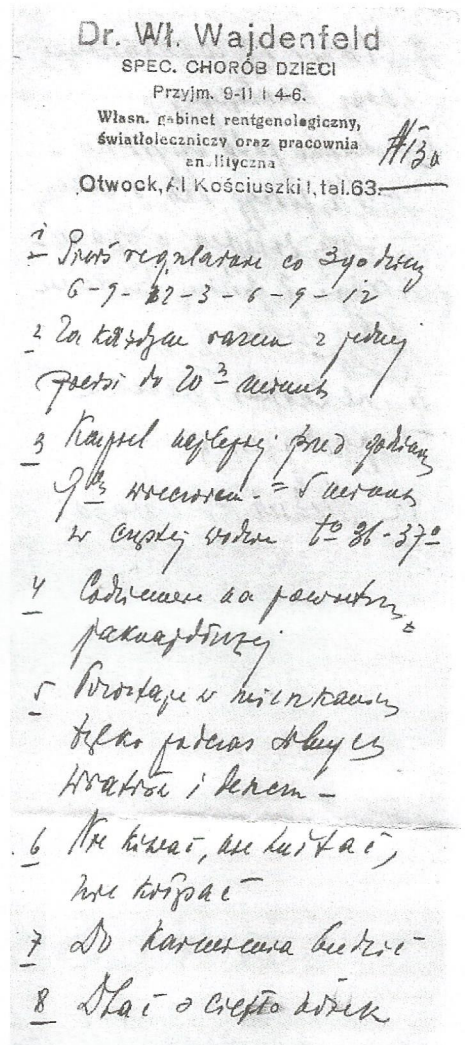 Dr. Wł. Wajdenfeld
SPEC. CHORÓB DZIECI
Przyjm. 9-11 i 4-6.
Własn. gabinet rentgenologiczny,
światłoleczniczy oraz pracownia
analityczna
Otwock, Al Kościuszki 1, tel. 63.
1 Pierś regularnie co 3 godziny
6-9-12-3-6-9-12
2 Za każdym razem z jednej
piersi do 20 minut
3 Kąpiel najlepiej przed godziną
9ą wieczorem = 5 minut
w czystej wodzie t° 36-37°
4 Codziennie na powietrzu
jaknajdłużej
5 Pozostaje w mieszkaniu
tylko podczas silnych
wiatrów i deszczu -
6 Nie kiwać, nie huśtać,
nie
7 Do karmienia budzić
8 Dbać o ciepło nóżek